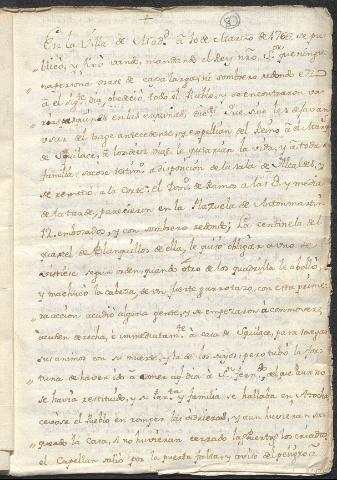 8
En la Villa de Madrid à 10 de Marzo de 1766 se pu-
blicó, y fixó vando, mandando el Rey nro. Sor. que ningu-
na persona usase de capa larga, ni sombrero redondo
à el sigte. dia, obedeció todo el Pueblo, y se encontraron
en las esquinas, que si no les dejavan
usar del trage antecedente, y expelian del Reyno à
de Squilace, le quitarian la vida, y à toda su
familia: à disposicion de la Sala de Alcaldes, y
se remitió à la Corte. el Domo. de Ramos à las y media
de la tarde, parecieron en la Plazuela de Anton martin
12 embozados, y con sombrero redondo; la centinela del
quartel de Blanquillos de ella, le quiso obligar à uno se
segun orden, quando otro de los quadrilla le
y machucó la cabeza, de un fuerte garrotazo, con esta prime-
ra accion acudio alguna gente, y se empezaron à conmover;
acuden derecha, è inmediatamte. à casa de Squilace, para
sus animos con su muerte, y la de los suyos; pero tubo la for-
tuna de haver ido à comer aql. dia à Sn. Ferndo., del que aun no
se havia restituido, y su y familia se hallaba en Atocha
el Pueblo en romper las vidrieras, y aun huvieran
la Casa, si no huvieran cerrado las Puertas los criados,
el Capellan salió por la puerta falsa, y avisó del peligro à